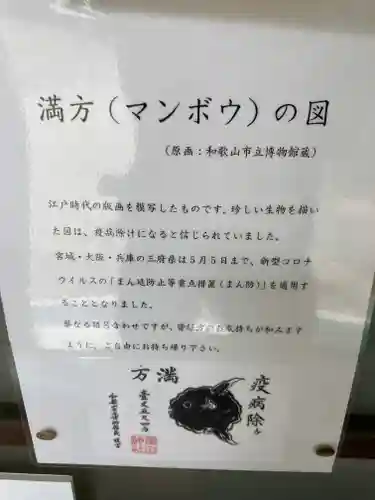 満方（マンボウ）の図
（原画：和歌山市立博物館蔵）
江戸時代の版画を模写したものです。珍しい生物を描い
た図は、疫病除けになると信じられていました。
宮城・大阪・兵庫の三府県は5月5日まで、新型コロナ
ウイルスの「まん延防止等重点措置（まん防）」を適用す
ることとなりました。
単なる語呂合わせですが、皆様方のお気持ちが和みます
ように、ご自由にお持ち帰り下さい。
満方
疫病除ル